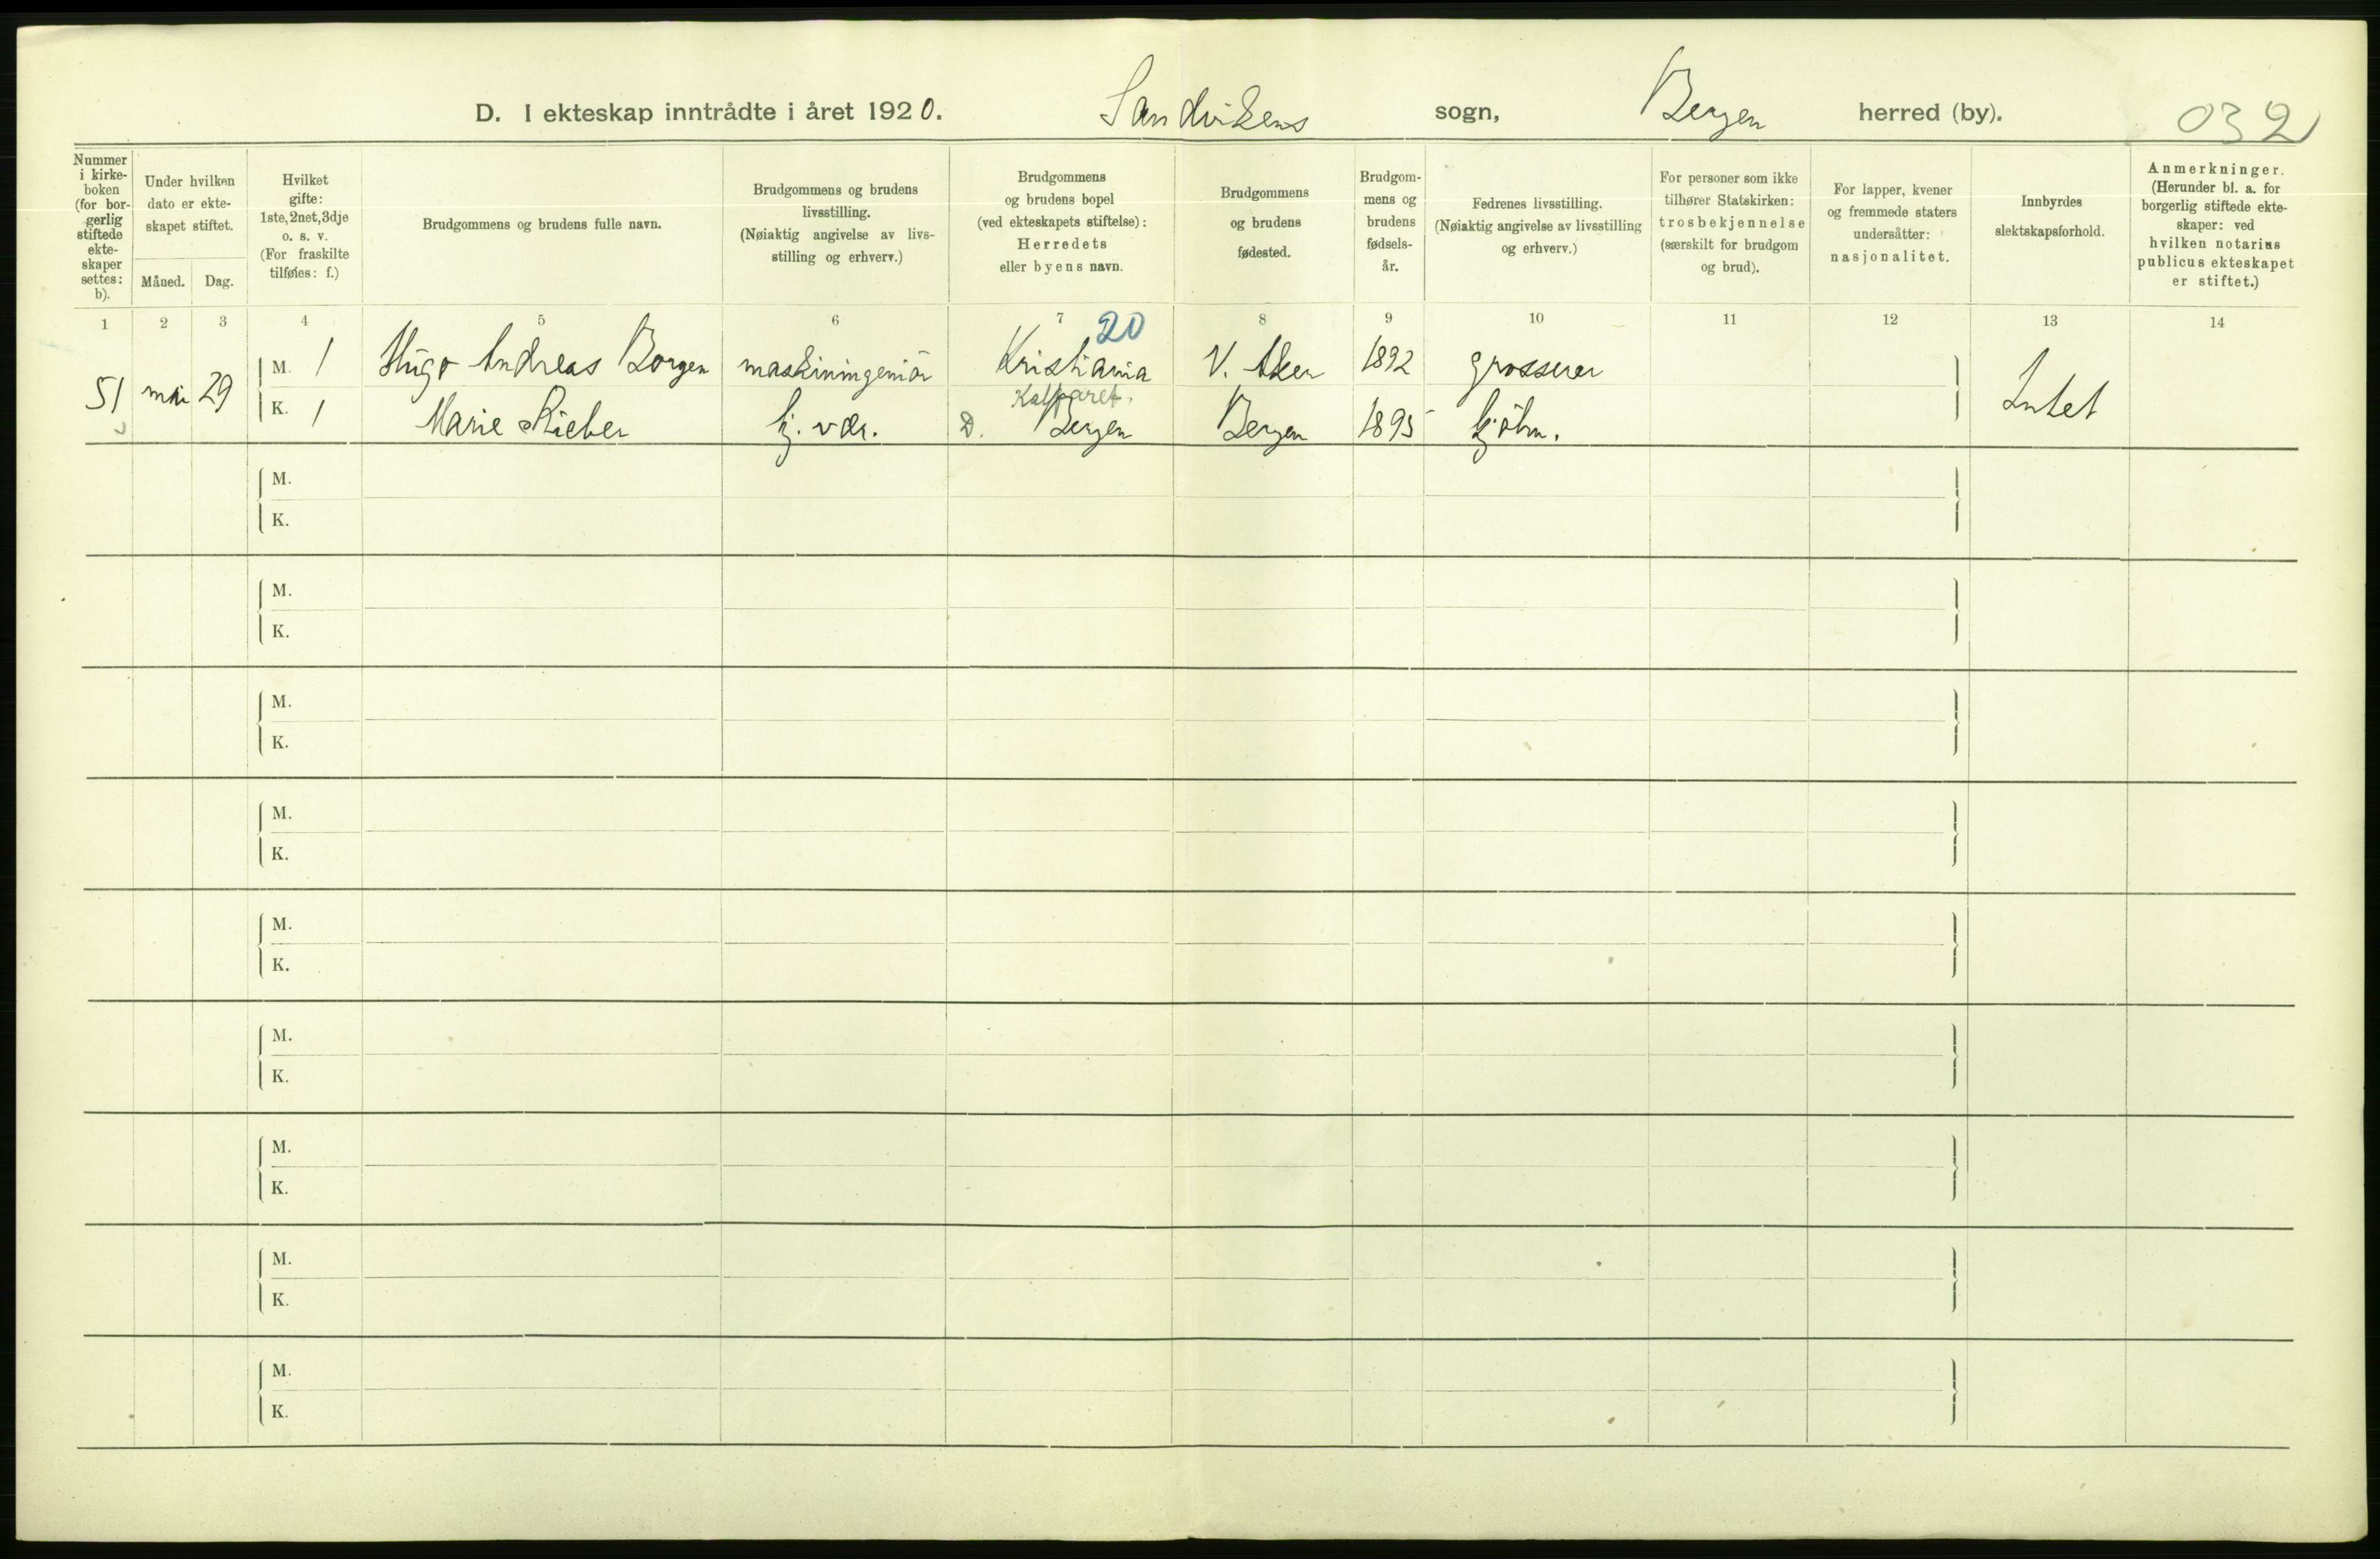 D. I ekteskap inntrådte i året 1920. Sandvikens sogn, Bergen herred (by). 032
Nummer i kirke-boken (for bor-gerlig stiftede ekte-skaper settes: b).
Under hvilken dato er ekte-skapet stiftet.
Måned. Dag.
Hvilket gifte: 1ste, 2net, 3dje o. s. v. (For fraskilte tilføies: f.)
Brudgommens og brudens fulle navn.
Brudgommens og brudens livsstilling. (Nøiaktig angivelse av livs-stilling og erhverv.)
Brudgommens og brudens bopel (ved ekteskapets stiftelse): Herredets eller byens navn.
Brudgommens og brudens fødested.
Brudgom-mens og brudens fødsels-år.
Fedrenes livsstilling. (Nøiaktig angivelse av livsstilling og erhverv.)
For personer som ikke tilhører Statskirken: trosbekjennelse (særskilt for brudgom og brud).
For lapper, kvener og fremmede staters undersåtter: nasjonalitet.
Innbyrdes slektskapsforhold.
Anmerkninger. (Herunder bl. a. for borgerlig stiftede ekte-skaper: ved hvilken notarius publicus ekteskapet er stiftet.)
1 2 3 4 5 6 7 8 9 10 11 12 13 14
20
51 mai 29
M. 1 Hugo Andreas Borgen maskiningeniör Kristiania V. Aker 1892 grosserer
Kalfaret.
K. 1 Marie Rieber hj. vær. D. Bergen Bergen 1895 kjöbm.
Intet
M.
K.
M.
K.
M.
K.
M.
K.
M.
K.
M.
K.
M.
K.
M.
K.
M.
K.